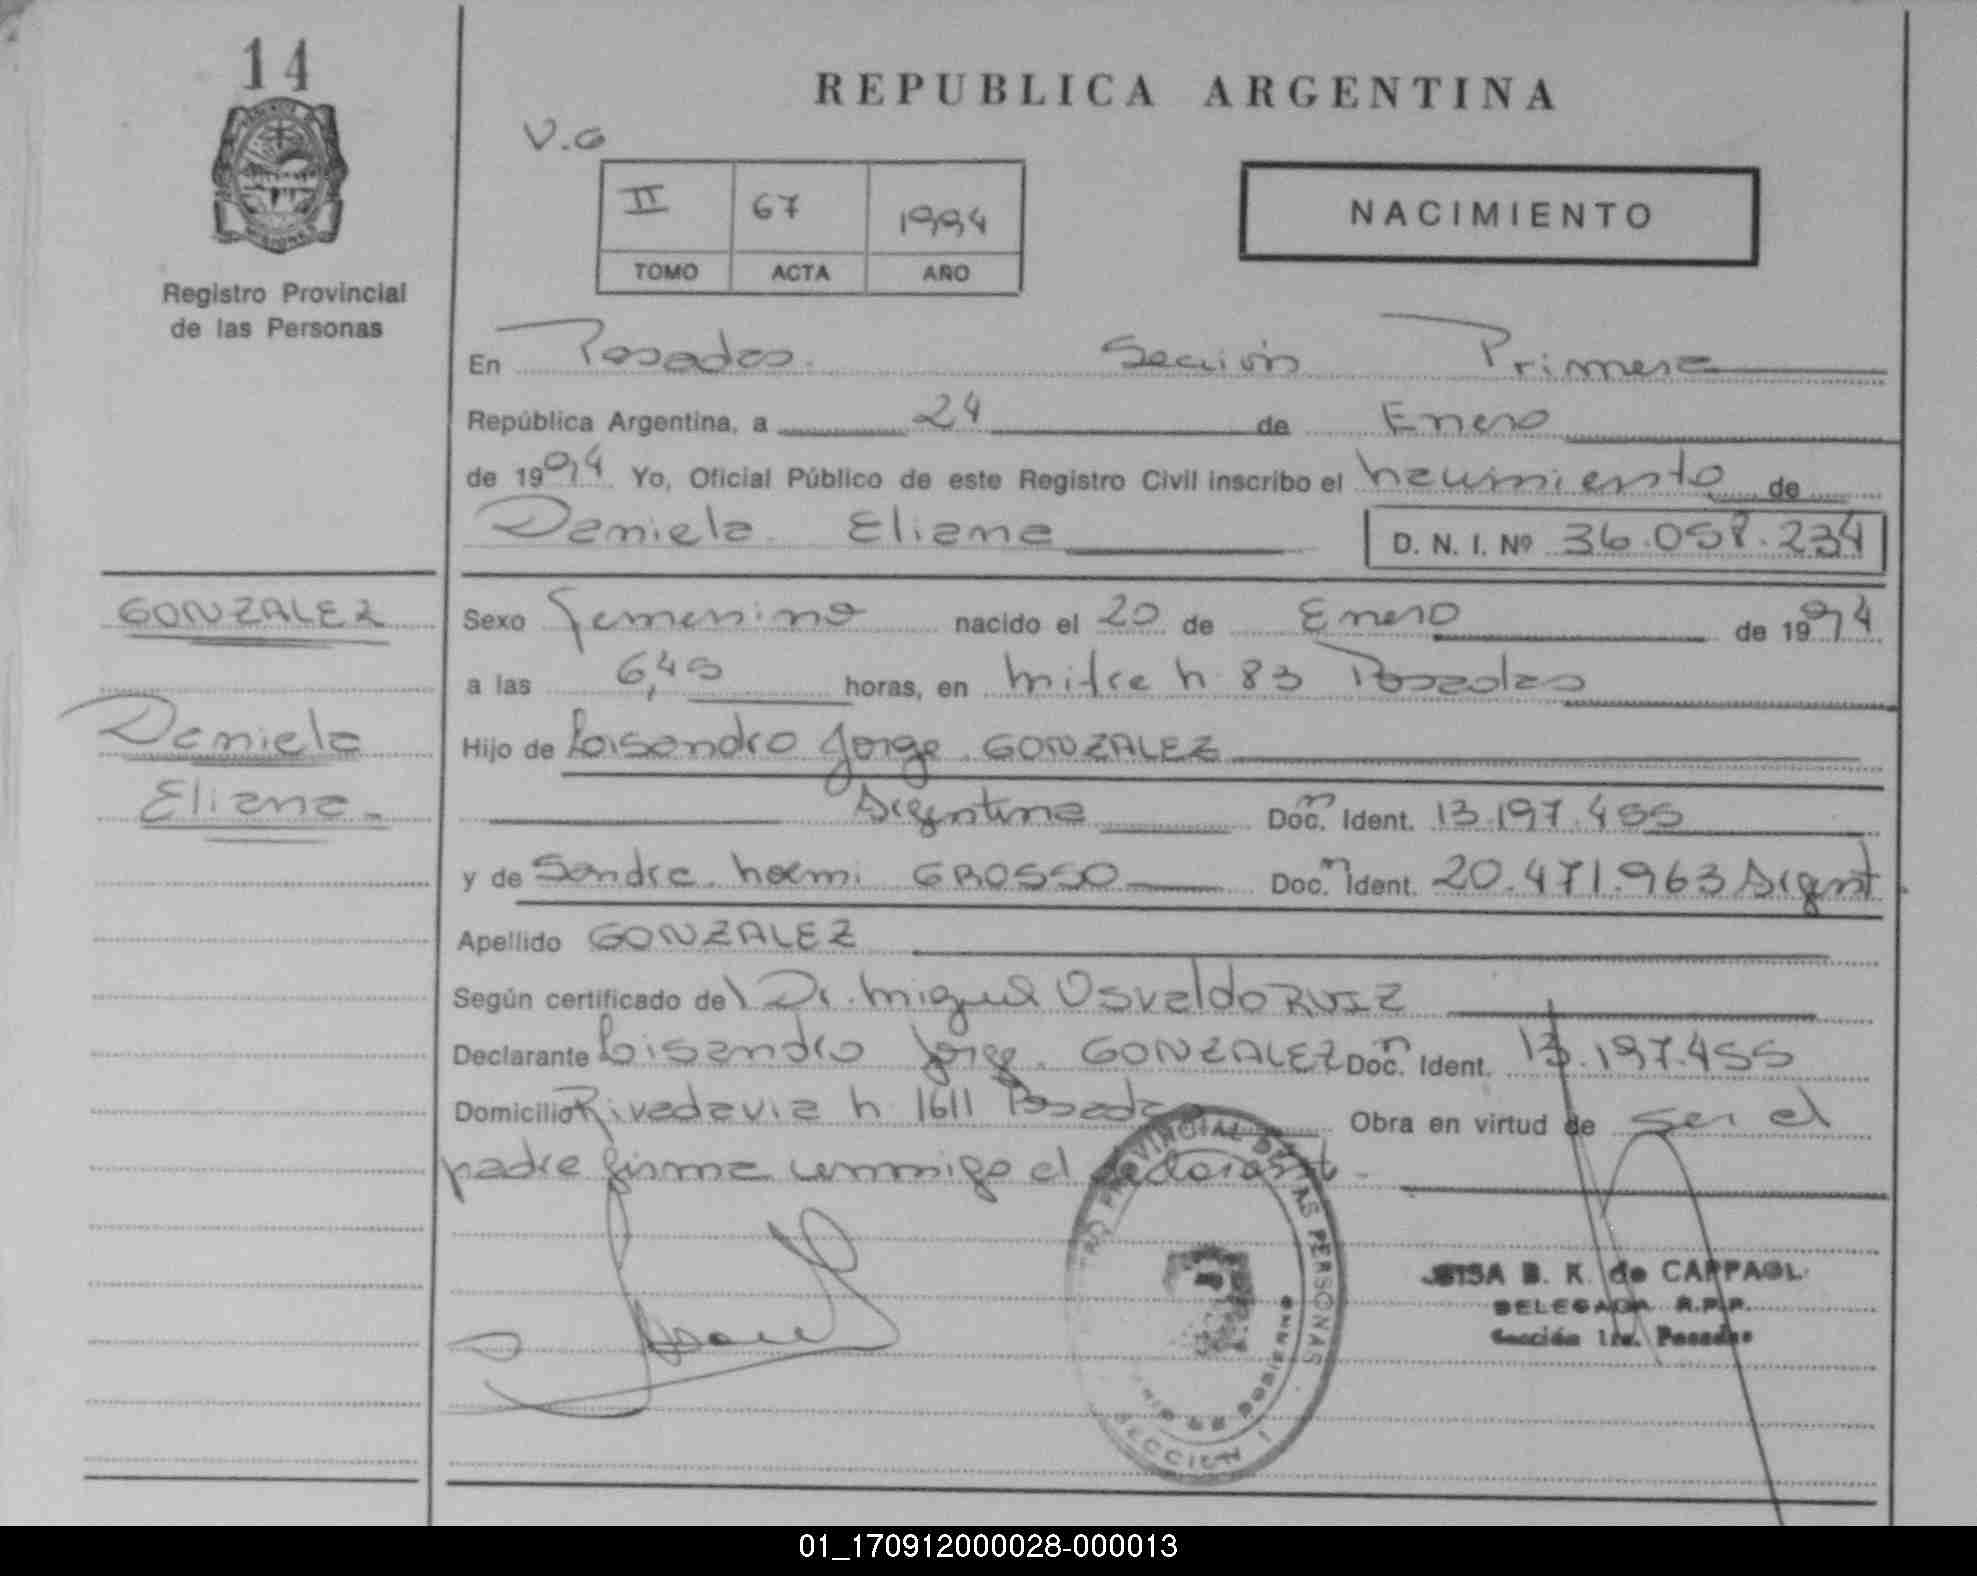 14
REPUBLICA ARGENTINA
V.G
II 67 1994
TOMO ACTA AÑO
NACIMIENTO
Registro Provincial
de las Personas
En Posadas. Sección Primera
República Argentina, a 24 de Enero
de 1994 Yo, Oficial Público de este Registro Civil inscribo el nacimiento de
Daniela Eliana D. N. I. Nº 36.058.234
GONZALEZ
Daniela
Eliana.-
Sexo femenino nacido el 20 de Enero de 1994
a las 6,45 horas, en Mitre n. 83 Posadas
Hijo de Lisandro Jorge GONZALEZ
Argentina Doc. Ident. 13.197.455
y de Sandra Noemi GROSSO Doc. Ident. 20.471.963 Argent
Apellido GONZALEZ
Según certificado del Dr. Miguel Osvaldo RUIZ
Declarante Lisandro Jorge GONZALEZ Doc. Ident. 13.197.455
Domicilio Rivadavia n. 1611 Posadas Obra en virtud de ser el
padre firma conmigo el
PROVINCIAL DE LAS PERSONAS
DE GOBIERNO
SECCION 1
B. K. de
DELEGADA R.P.P.
Sección 1ra. Posadas
01_170912000028-000013